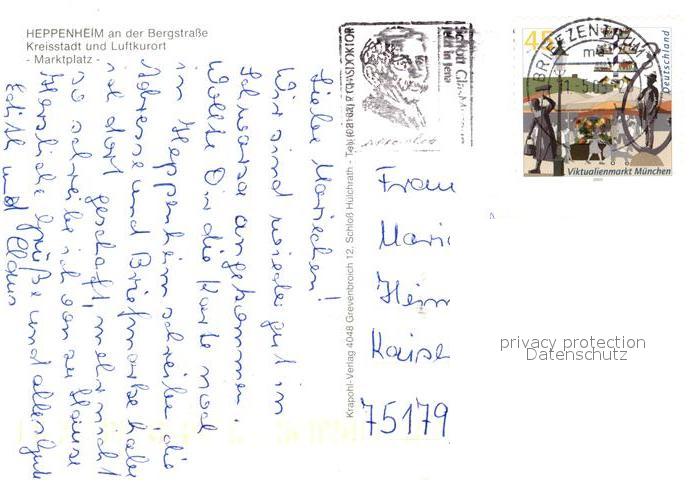 HEPPENHEIM an der Bergstraße
Kreisstadt und Luftkurort
- Marktplatz -
Liebe Mariechen!
Wir sind wieder gut in
angekommen
Wollte Dir die Karte noch
in Heppenheim schreiben, die
Adresse und Briefmarke habe
ich dort geschafft, mehr nicht
so schreibe ich von zu Hause
Herzliche Grüße und alles Gute
Edith und Klaus
Krapohl-Verlag 4048 Grevenbroich 12, Schloß Hülchrath - Tel
Frau
Mari
Hein
Kaise
75179
BRIEFZENTRUM
45
Deutschland
Viktualienmarkt München
privacy protection
Datenschutz